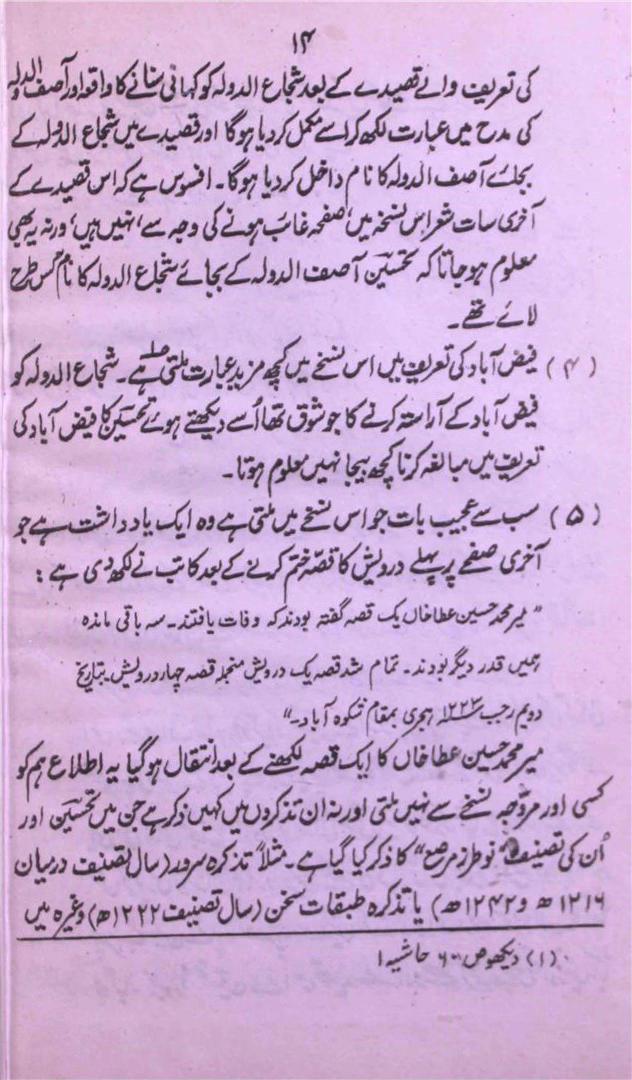 ۱۴
کی تعریف والے قصیدے کے بعد شجاع الدولہ کو کہانی سنانے کا واقعہ اور آصف الدولہ
کی مدح میں عبارت لکھ کر اسے مکمل کر دیا ہوگا اور قصیدے میں شجاع الدولہ کے
بجائے آصف الدولہ کا نام داخل کر دیا ہوگا۔ افسوس ہے کہ اس قصیدے کے
آخری سات شعر اس نسخہ میں، صفحہ غائب ہونے کی وجہ سے، نہیں ہیں، ورنہ یہ بھی
معلوم ہو جاتا کہ تحسین آصف الدولہ کے بجائے شجاع الدولہ کا نام کس طرح
لائے تھے۔
(۴) فیض آباد کی تعریف میں اس نسخے میں کچھ مزید عبارت ملتی ہے۔ شجاع الدولہ کو
فیض آباد کے آراستہ کرنے کا جو شوق تھا اُسے دیکھتے ہوئے تحسین کا فیض آباد کی
تعریف میں مبالغہ کرنا کچھ بیجا نہیں معلوم ہوتا۔
(۵) سب سے عجیب بات جو اس نسخے میں ملتی ہے وہ ایک یادداشت ہے جو
آخری صفحے پر پہلے درویش کا قصّہ ختم کرنے کے بعد کاتب نے لکھ دی ہے:
"میر محمد حسین عطا خاں یک قصہ گفتہ بودند کہ وفات یافتند۔ سہ باقی ماندہ
ہمیں قدر دیگر بودند۔ تمام شد قصہ یک درویش منجملہ قصہ چہار درویش بتاریخ
دویم رجب ۱۲۲۳ ہجری بمقام شکوہ آباد۔"
میر محمد حسین عطا خاں کا ایک قصہ لکھنے کے بعد انتقال ہو گیا یہ اطلاع ہم کو
کسی اور مروّجہ نسخے سے نہیں ملتی اور نہ ان تذکروں میں کہیں ذکر ہے جن میں تحسین اور
اُن کی تصنیف "نو طرز مرصع" کا ذکر کیا گیا ہے۔ مثلاً تذکرہ سرور (سال تصنیف درمیان
۱۲۱۶ھ و ۱۲۴۲ھ) یا تذکرہ طبقات سخن (سال تصنیف ۱۲۲۲ھ) وغیرہ میں
(۱) دیکھو ص ۶۰ حاشیہ ۱